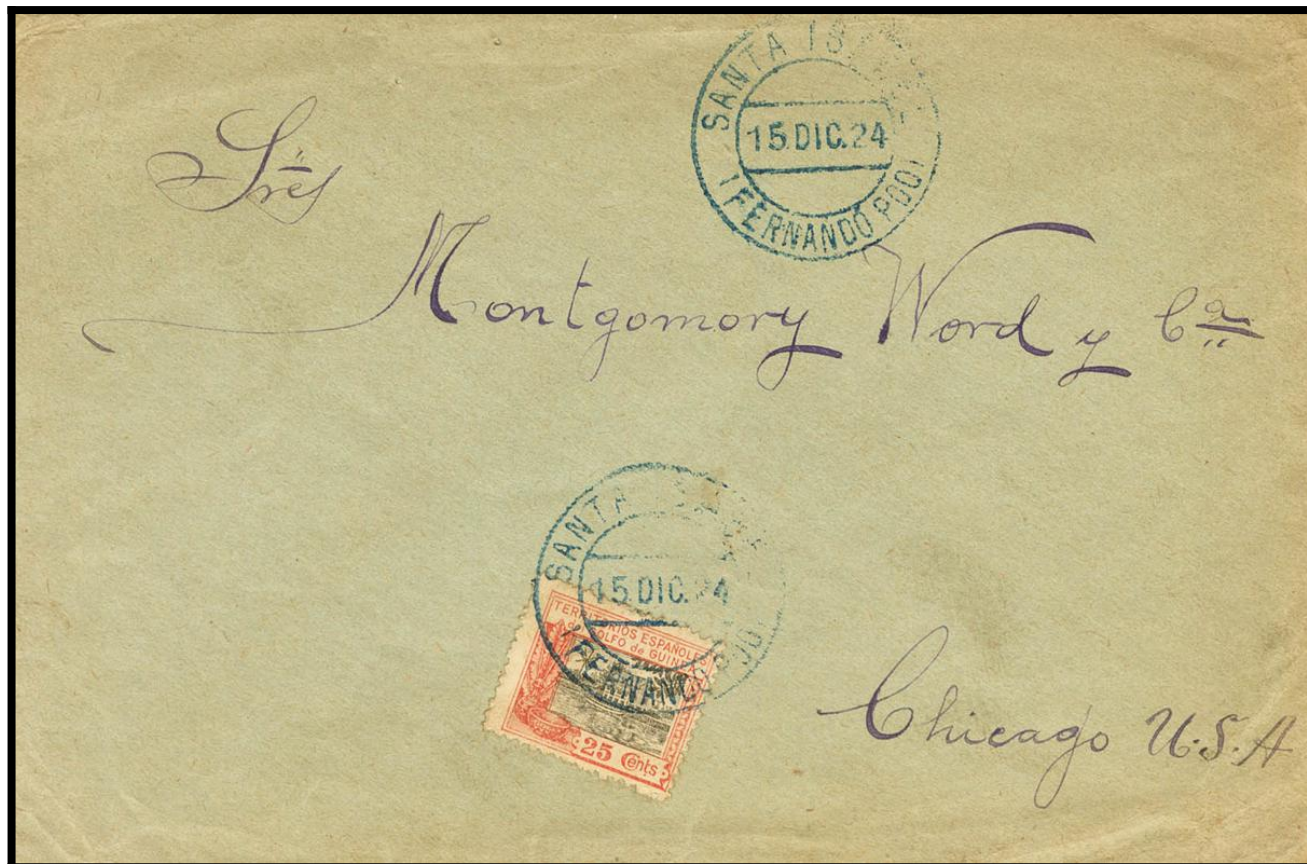 SANTA
15.DIC.24
(FERNANDO POO)
Sres
Montgomory Word y Cª
SANTA
15.DIC.24
TERRITORIOS ESPAÑOLES
del GOLFO de GUINEA
25 Cents
Chicago U.S.A